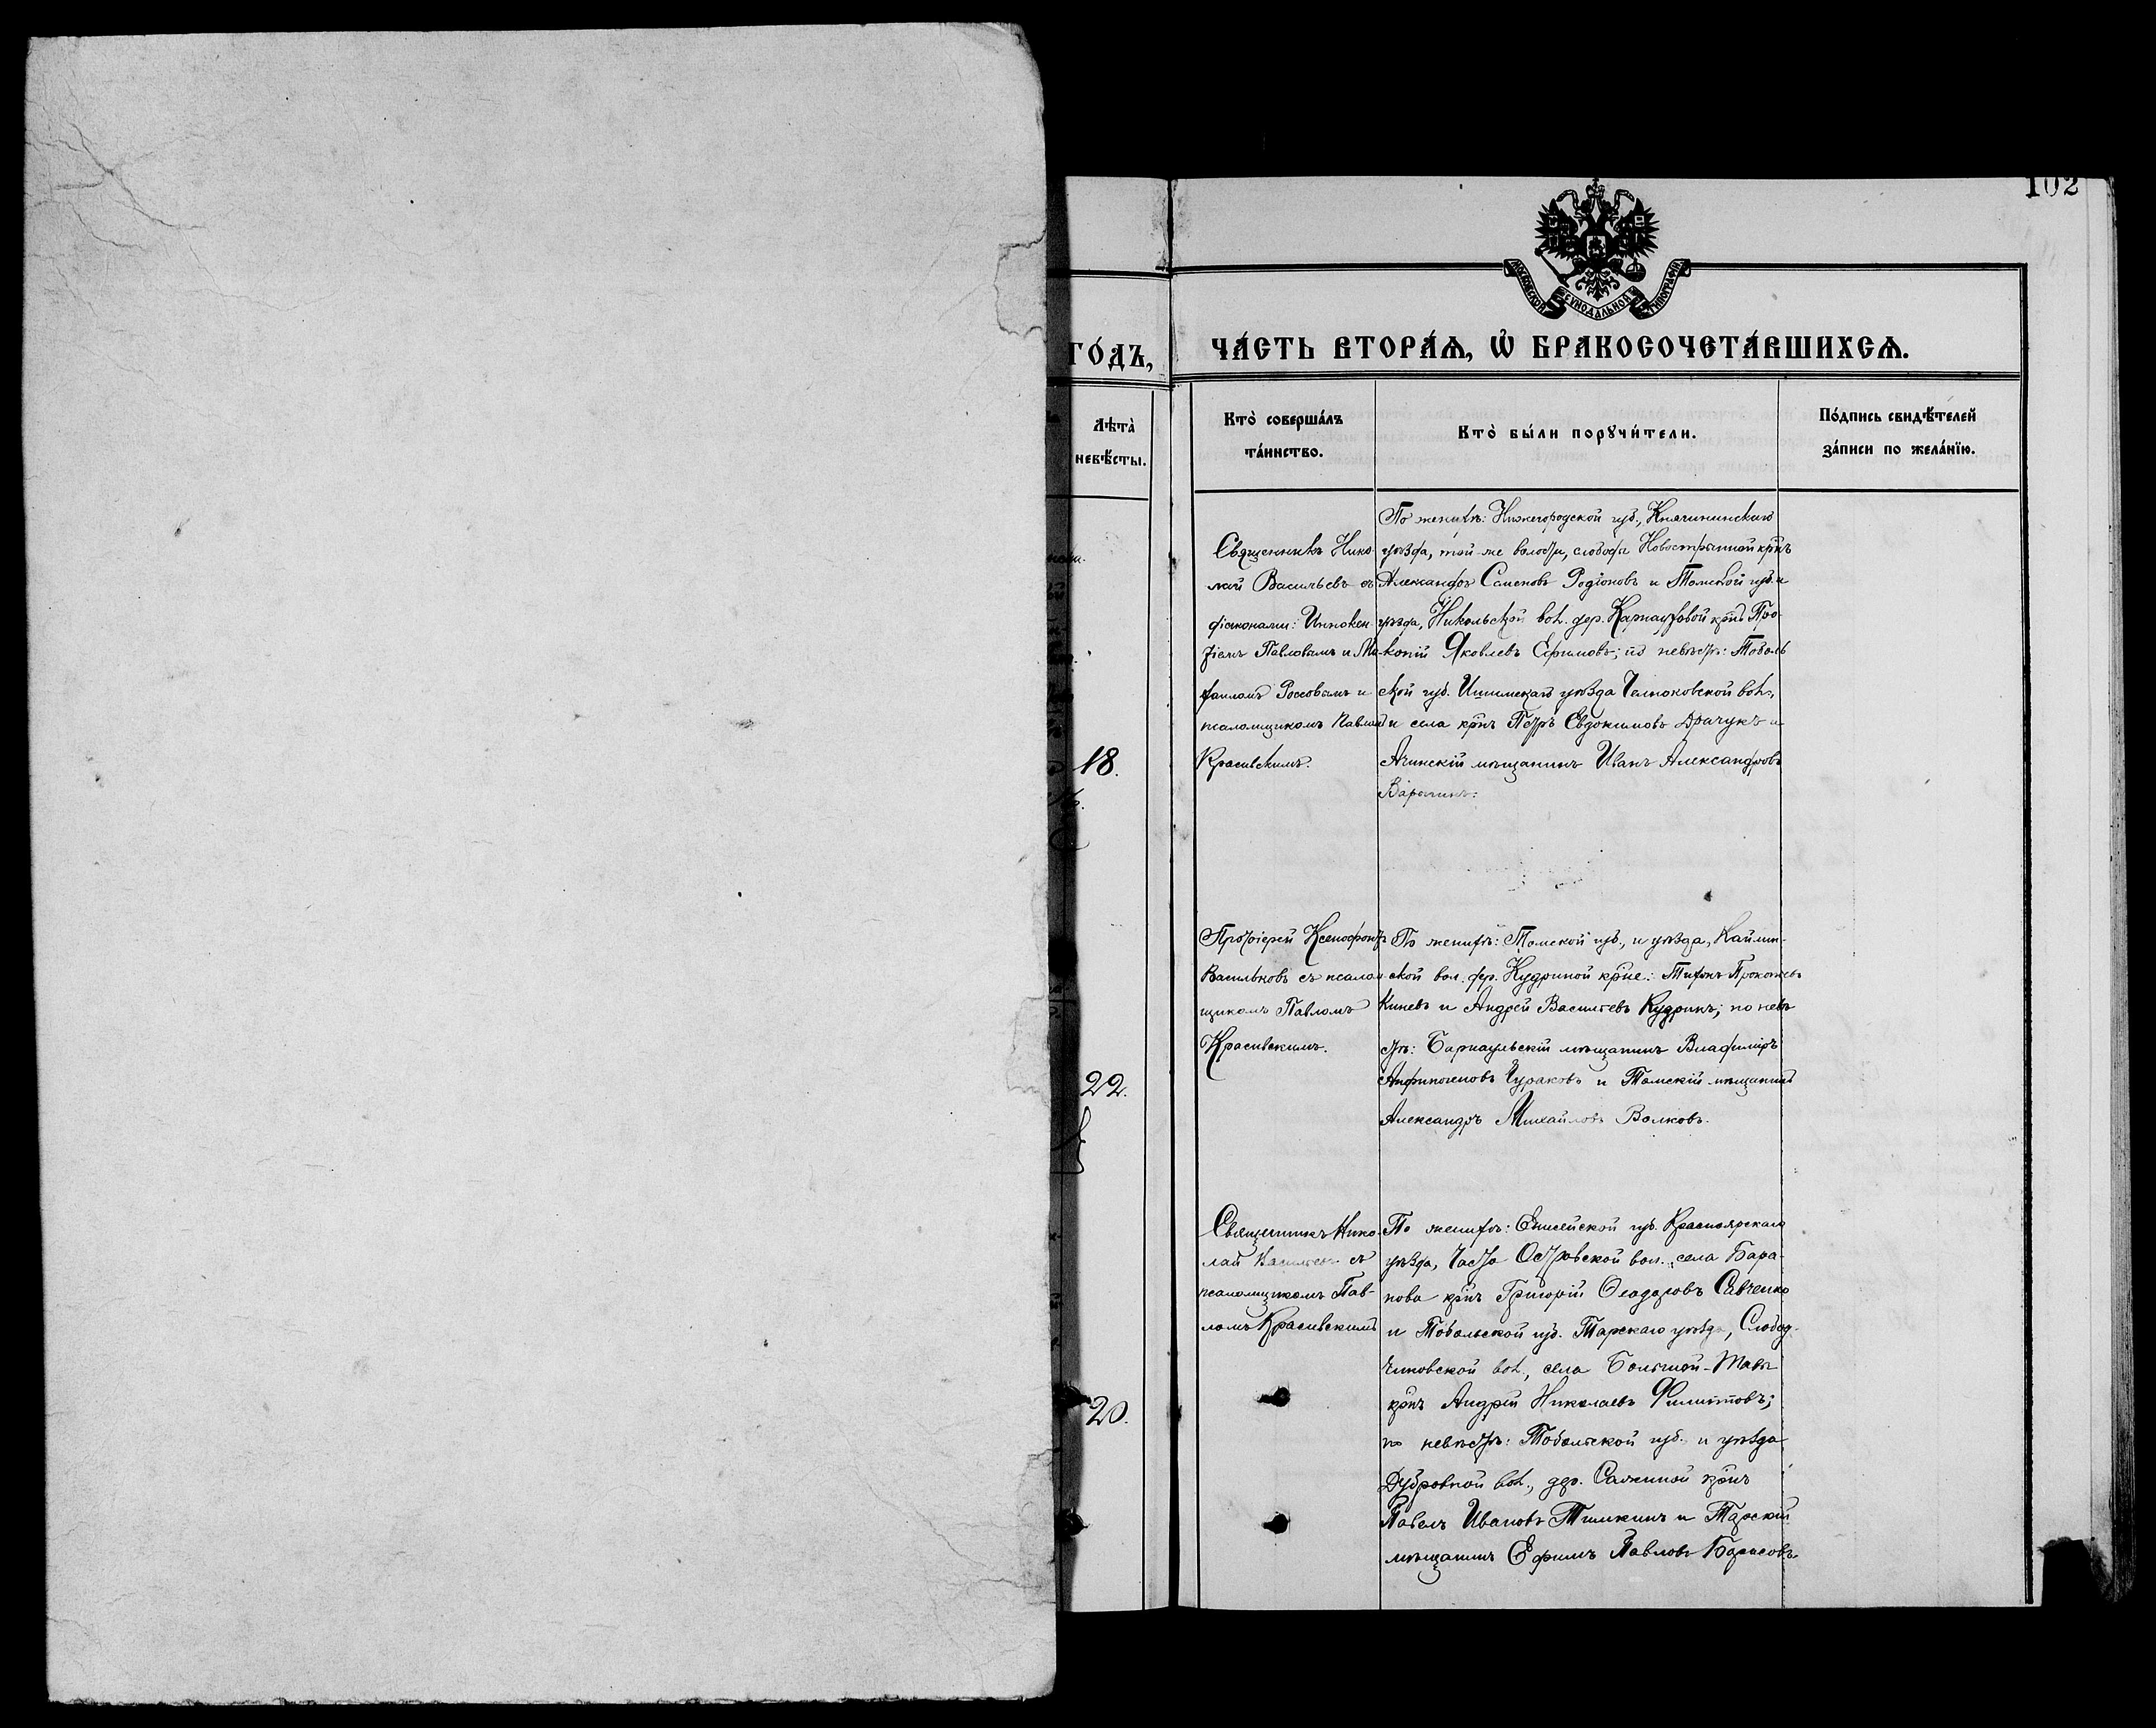 102
МОСКОВСКОЙ СѴНОДАЛЬНОЙ ТИПОГРАФІИ
ГО́ДЪ,
ЧА́СТЬ ВТОРА́Ѧ, Ѡ҆ БРАКОСОЧЕТА́ВШИХСѦ.
Лѣта̀
невѣ́сты.
Кто̀ соверша́лъ
та́инство.
Кто̀ бы́ли порꙋчи́тели.
По́дпись свидѣ́телей
за́писи по жела́нїю.
18.
Священникъ Нико-
лай Васильевъ съ
діаконами: Иннокен-
тіемъ Павловымъ и
Россовымъ и
псаломщикомъ Павломъ
Красивскимъ.
По женихѣ: Нижегородской губ., Княгининскаго
уѣзда, той-же волости, слобода крнъ
Александръ Семеновъ Родіоновъ и Томской губ. и
уѣзда, Никольской вол. дер. Карнауховой крнъ Про-
копій Яковлевъ Ефимовъ; по невѣстѣ: Тоболь-
ской губ. Ишимскаго уѣзда Челноковской вол.,
и села крнъ Петръ Евдокимовъ Драчукъ и
Ачинскій мѣщанинъ Иванъ Александровъ
22.
Протоіерей Ксенофонтъ
Васильковъ съ псалом-
щикомъ Павломъ
Красивскимъ.
По женихѣ: Томской губ., и уѣзда, Кайлин-
ской вол. дер. Кудриной крне: Тихонъ Прокопьевъ
Киневъ и Андрей Васильевъ Кудринъ; по невѣ-
стѣ: Барнаульскій мѣщанинъ Владиміръ
Анфиногеновъ Чураковъ и Томскій мѣщанинъ
Александръ Михайловъ Волковъ.
20.
Священникъ Нико-
лай Васильевъ съ
псаломщикомъ Пав-
ломъ Красивскимъ
По женихѣ: Енисейской губ. Красноярскаго
уѣзда, Часто Островской вол., села Бара-
нова крнъ Григорій Ѳеодоровъ Савченко
и Тобольской губ. Тарскаго уѣзда, Слобод-
чиковской вол., села Большой-Тавы
крнъ Андрей Николаевъ Филипповъ;
по невѣстѣ: Тобольской губ. и уѣзда
Дубровной вол., дер. Саминой крнъ
Павелъ Ивановъ Тимкинъ и Тарскій
мѣщанинъ Ефимъ Павловъ Борисовъ